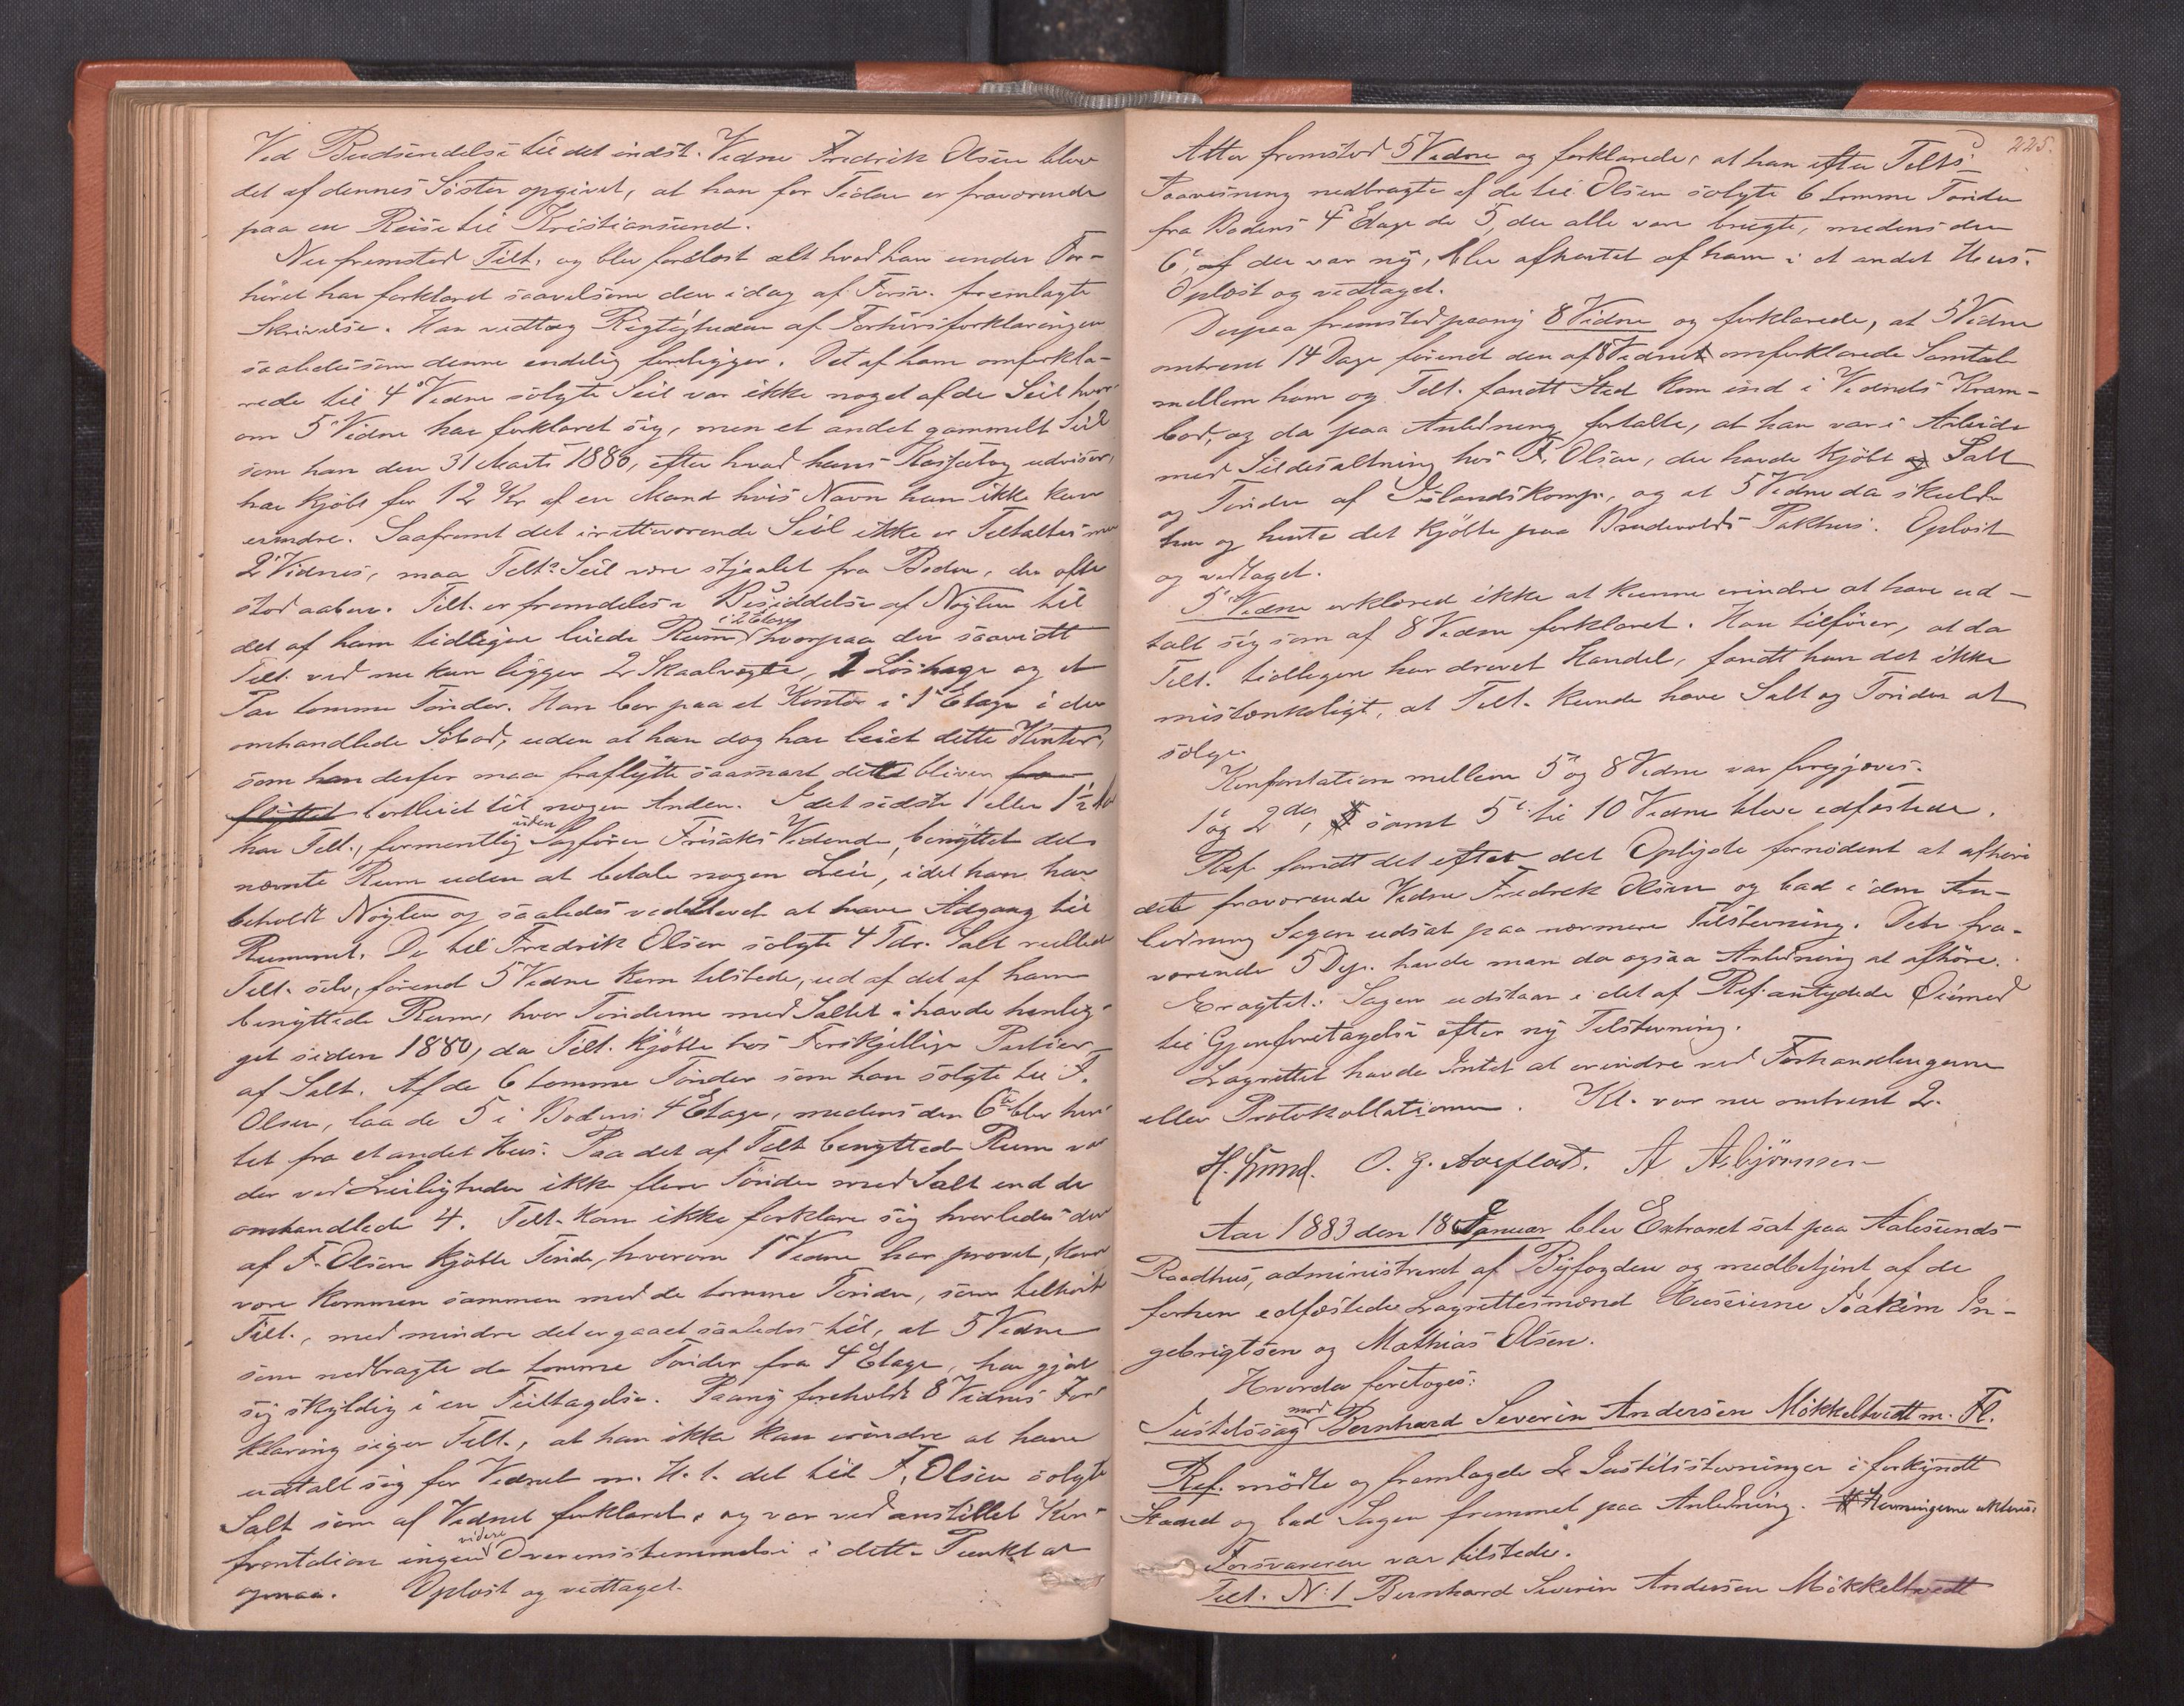 Ved Budsendelse til det indst. Vidne Fredrik Olsen blev
det af dennes Søster opgivet, at han for Tiden er fraværende
paa en Reise til Kristiansund.
Nu fremstod Tilt. og blev forelæst alt hvad han under For-
høret har forklaret saavelsom den idag af Forsv. fremlagte
Skrivelse. Han vedtog Rigtigheden af Forhørsforklaringen
saaledes som denne endelig foreligger. Det af ham omforkla-
rede til 4de Vidne solgte Seil var ikke noget af de Seil hvor-
om 5te Vidne har forklaret sig, men et andet gammelt Seil
som han den 31 Marts 1880, efter hvad hans Kassebog udviser,
har kjøbt for 12 Kr af en Mand hvis Navn han ikke kan
erindre. Saafremt det iretteværende Seil ikke er Tiltaltes men
2det Vidnes, maa Tilts Seil være stjaalet fra Boden, der ofte
stod aaben. Tilt. er fremdeles i Besiddelse af Nøglen til
det af ham tidligere leiede Rum i 2 Etage hvorpaa der saavidt
Tilt. ved nu kun ligger 2 Skaalvægte, 1 Løshage og et
Par tomme Tønder. Han bor paa et Kontor i 1ste Etage i den
omhandlede Søbod, uden at han dog har leiet dette Kontor,
som han derfor maa fraflytte saasnart dette bliver fra-
flyttet bortleiet til nogen Anden. I det sidste 1 eller 1½ Aar
har Tilt., formentlig uden Sagfører Frisaks Vidende, benyttet det
nævnte Rum uden at betale nogen Leie, idet han har
beholdt Nøglen og saaledes vedblevet at have Adgang til
Rummet. De til Fredrik Olsen solgte 4 Tdr. Salt rullede
Tilt. selv, førend 5te Vidne kom tilstede, ud af det af ham
benyttede Rum, hvor Tønderne med Saltet i havde henlig-
get siden 1880, da Tilt. kjøbte hos Forskjellige Partier
af Salt. Af de 6 tomme Tønder som han solgte til F.
Olsen, laa de 5 i Bodens 4de Etage, medens den 6te blev hen-
tet fra et andet Hus. Paa det af Tilt benyttede Rum var
der ved Leiligheden ikke flere Tønder med Salt end de
omhandlede 4. Tilt. kan ikke forklare sig hvorledes den
af F. Olsen kjøbte Tønde, hvorom 1ste Vidne har prøvet, kan
være kommen sammen med de tomme Tønder, som tilhørte
Tilt., med mindre det er gaaet saaledes til, at 5te Vidne
som nedbragte de tomme Tønder fra 4de Etage, har gjort
sig skyldig i en Feiltagelse. Paany foreholdt 8de Vidnes For-
klaring siger Tilt., at han ikke kan erindre at have
udtalt sig for Vidnet m. H. t. det til F. Olsen solgte
Salt som af Vidnet forklaret, og var ved anstillet Kon-
frontation ingen videre Overensstemmelse i dette Punkt at
opnaa. Oplæst og vedtaget.
225.
Atter fremstod 5te Vidne og forklarede, at han efter Tilts
Paavisning nedbragte af de til Olsen solgte 6 tomme Tønder
fra Bodens 4de Etage de 5, der alle vare brugte, medens den
6te, af der var ny, blev afhentet af ham i et andet Hus.
Oplæst og vedtaget.
Derpaa fremstod paany 8de Vidne og forklarede, at 5te Vidne
omtrent 14 Dage førend den af 8de Vidne omforklarede Samtale
mellem ham og Tilt. fandt Sted kom ind i Vidnets Kram-
bod, og da paa Anledning fortalte, at han var i Arbeide
med Sildesaltning hos F. Olsen, der havde kjøbt og Salt
og Tønder af Islandskomp., og at 5te Vidne da skulde
hen og hente det kjøbte paa Brudevolds Pakhus. Oplæst
og vedtaget.
5te Vidne erklæred ikke at kunne erindre at have ud-
talt sig som af 8de Vidne forklaret. Han tilføier, at da
Tilt. tidligere har drevet Handel, fandt han det ikke
mistænkeligt, at Tilt. kunde have Salt og Tønder at
sælge.
Konfrontation mellem 5te og 8de Vidne var forgjæves.
1ste og 2det, 5 samt 5te til 10de Vidne bleve edfæstede.
Ref. fandt det efter det Oplyste fornødent at afhøre
det fraværende Vidne Fredrik Olsen og bad i den An-
ledning Sagen udsat paa nærmere Tilstevning. Det fra-
værende 5 Dep. havde man da ogsaa Anledning at afhøre.
Eragtet: Sagen udstaar i det af Ref. antydede Øiemed
til Gjenforetagelse efter ny Tilstevning.
Lagrettet havde Intet at erindre ved Forhandlingerne
eller Protokollationen. Kl. var nu omtrent 2.
O. G. Aarflot. A Asbjørnsen
Aar 1883 den 18 Januar blev Extraret sat paa Aalesunds
Raadhus, administreret af Byfogden og medbetjent af de
forhen edfæstede Lagrettesmænd Huseierne Joakim In-
gebrigtsen og Mathias Olsen.
Hvorda foretoges:
Justitssag mod Bernhard Severin Andersen Mökkeltvedt m. Fl.
Ref. mødte og fremlagde 2 Justitsstevninger i forkyndt
Stand og bad Sagen fremmet paa Anledning. Stevningerne akteres.
Forsvareren var tilstede.
Tilt. N: 1 Bernhard Severin Andersen Mökkeltvedt